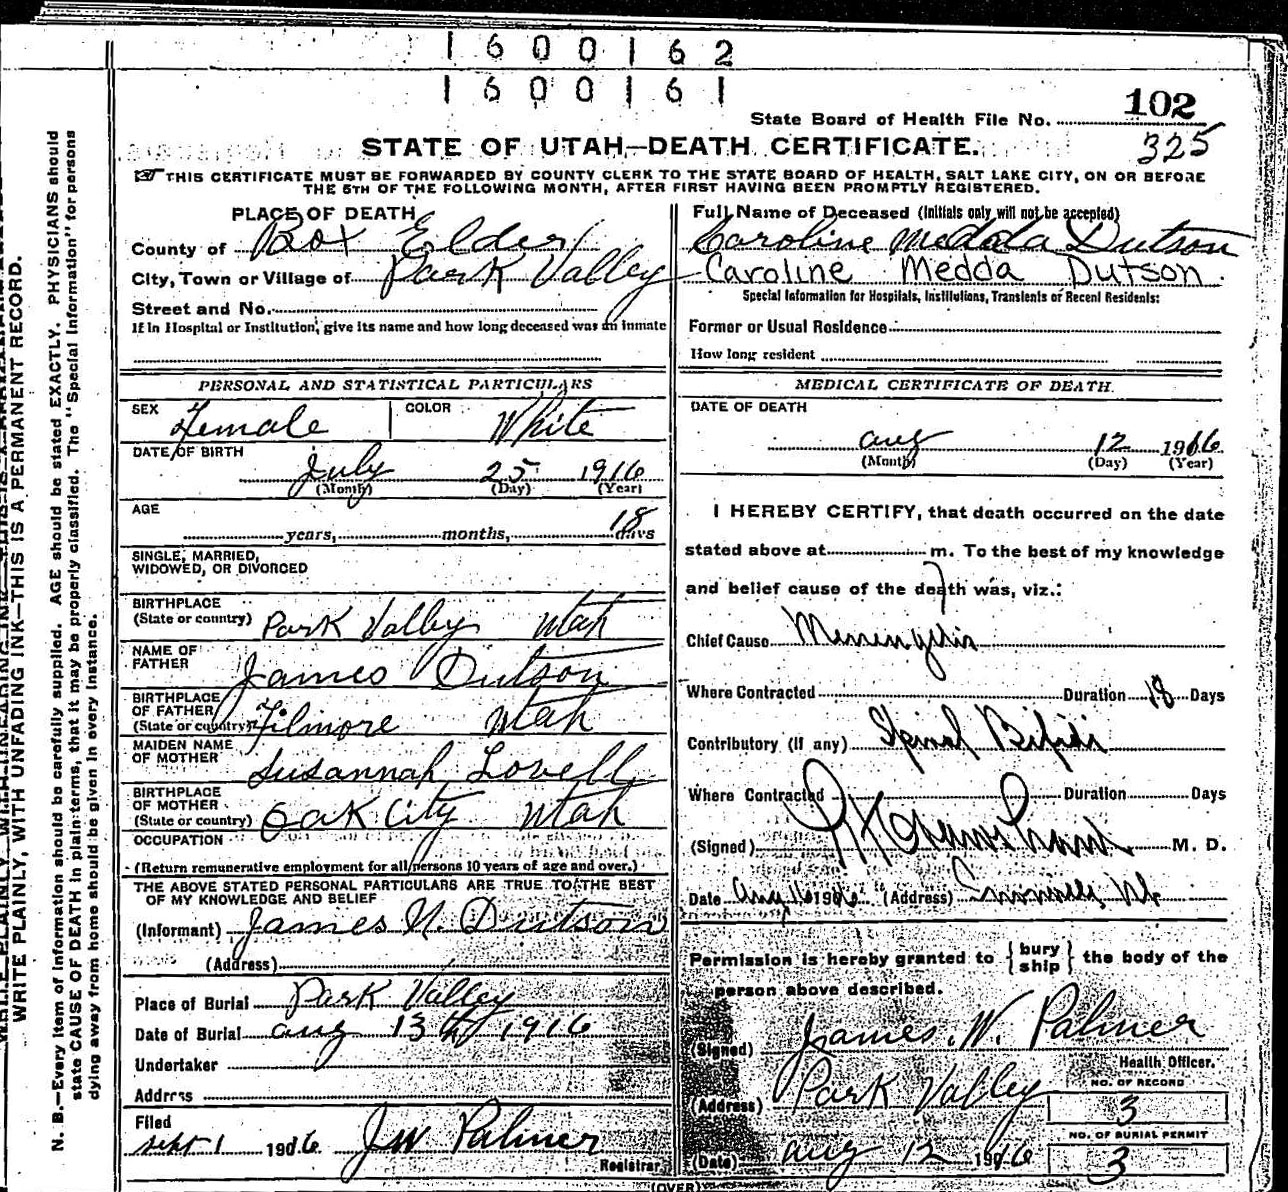 1600162
1600161
State Board of Health File No. 102
325
STATE OF UTAH—DEATH CERTIFICATE.
THIS CERTIFICATE MUST BE FORWARDED BY COUNTY CLERK TO THE STATE BOARD OF HEALTH, SALT LAKE CITY, ON OR BEFORE
THE 5TH OF THE FOLLOWING MONTH, AFTER FIRST HAVING BEEN PROMPTLY REGISTERED.
WRITE PLAINLY, WITH UNFADING INK—THIS IS A PERMANENT RECORD.
N. B.—Every item of information should be carefully supplied. AGE should be stated EXACTLY. PHYSICIANS should
state CAUSE OF DEATH in plain terms, that it may be properly classified. The "Special Information" for persons
dying away from home should be given in every instance.
PLACE OF DEATH
County of Box Elder
City, Town or Village of Park Valley
Street and No.
If in Hospital or Institution, give its name and how long deceased was an inmate
PERSONAL AND STATISTICAL PARTICULARS
SEX Female COLOR White
DATE OF BIRTH
July 25 1916
(Month) (Day) (Year)
AGE
years, months, 18 days
SINGLE, MARRIED,
WIDOWED, OR DIVORCED
BIRTHPLACE
(State or country) Park Valley Utah
NAME OF
FATHER James Dutson
BIRTHPLACE
OF FATHER
(State or country) Filmore Utah
MAIDEN NAME
OF MOTHER Susannah Lovell
BIRTHPLACE
OF MOTHER
(State or country) Oak City Utah
OCCUPATION
(Return remunerative employment for all persons 10 years of age and over.)
THE ABOVE STATED PERSONAL PARTICULARS ARE TRUE TO THE BEST
OF MY KNOWLEDGE AND BELIEF
(Informant) James N. Dutson
(Address)
Place of Burial Park Valley
Date of Burial aug 13th 1916
Undertaker
Address
Filed
sept 1 1916 JW Palmer
Registrar
Full Name of Deceased (Initials only will not be accepted)
Caroline Medda Dutson
Caroline Medda Dutson
Special Information for Hospitals, Institutions, Transients or Recent Residents:
Former or Usual Residence
How long resident
MEDICAL CERTIFICATE OF DEATH.
DATE OF DEATH
aug 12 1916
(Month) (Day) (Year)
I HEREBY CERTIFY, that death occurred on the date
stated above at m. To the best of my knowledge
and belief cause of the death was, viz.:
Chief Cause
Where Contracted Duration 18 Days
Contributory (if any) Spinal Bifidi
Where Contracted Duration Days
(Signed) M. D.
Date Aug 16 1916 (Address)
Permission is hereby granted to { bury ship } the body of the
person above described.
(Signed) James W. Palmer
Health Officer.
(Address) Park Valley
NO. OF RECORD
3
NO. OF BURIAL PERMIT
3
(Date) aug 12 1916
(OVER)